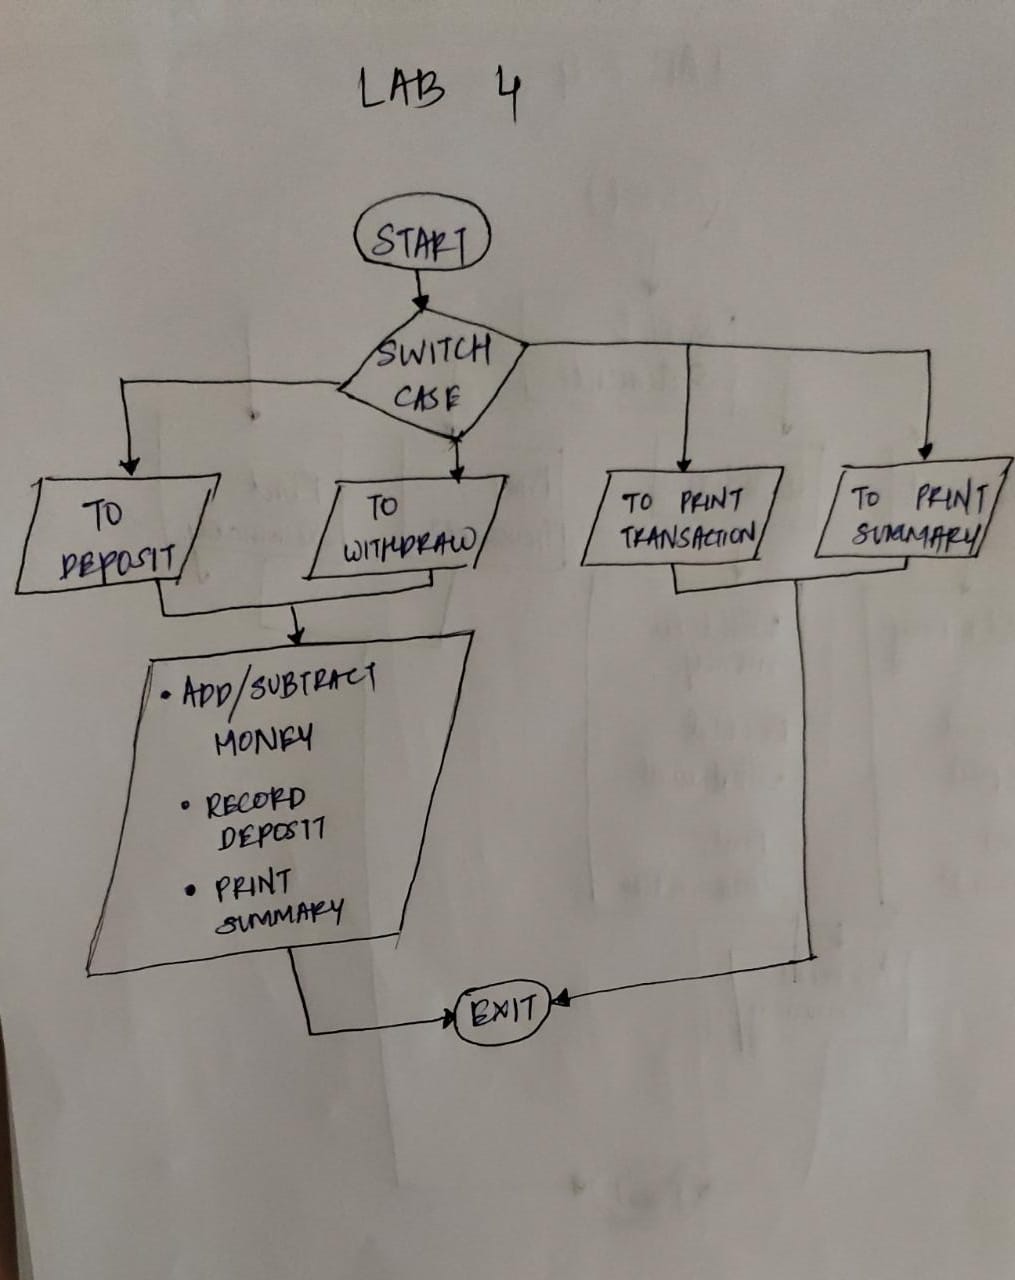 LAB 4
START
SWITCH
CASE
TO
DEPOSIT
TO
WITHDRAW
TO PRINT
TRANSACTION
TO PRINT
SUMMARY
• ADD/SUBTRACT
MONEY
• RECORD
DEPOSIT
• PRINT
SUMMARY
EXIT